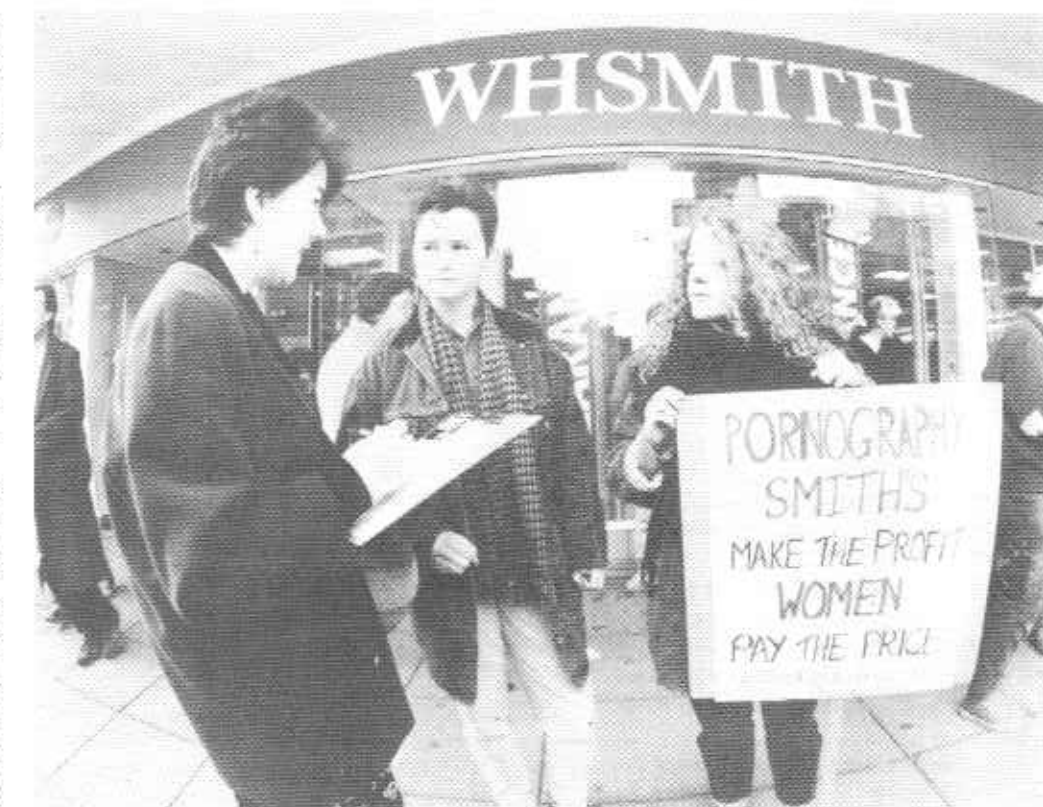 WHSMITH
PORNOGRAPHY
SMITHS
MAKE THE PROFIT
WOMEN
PAY THE PRICE